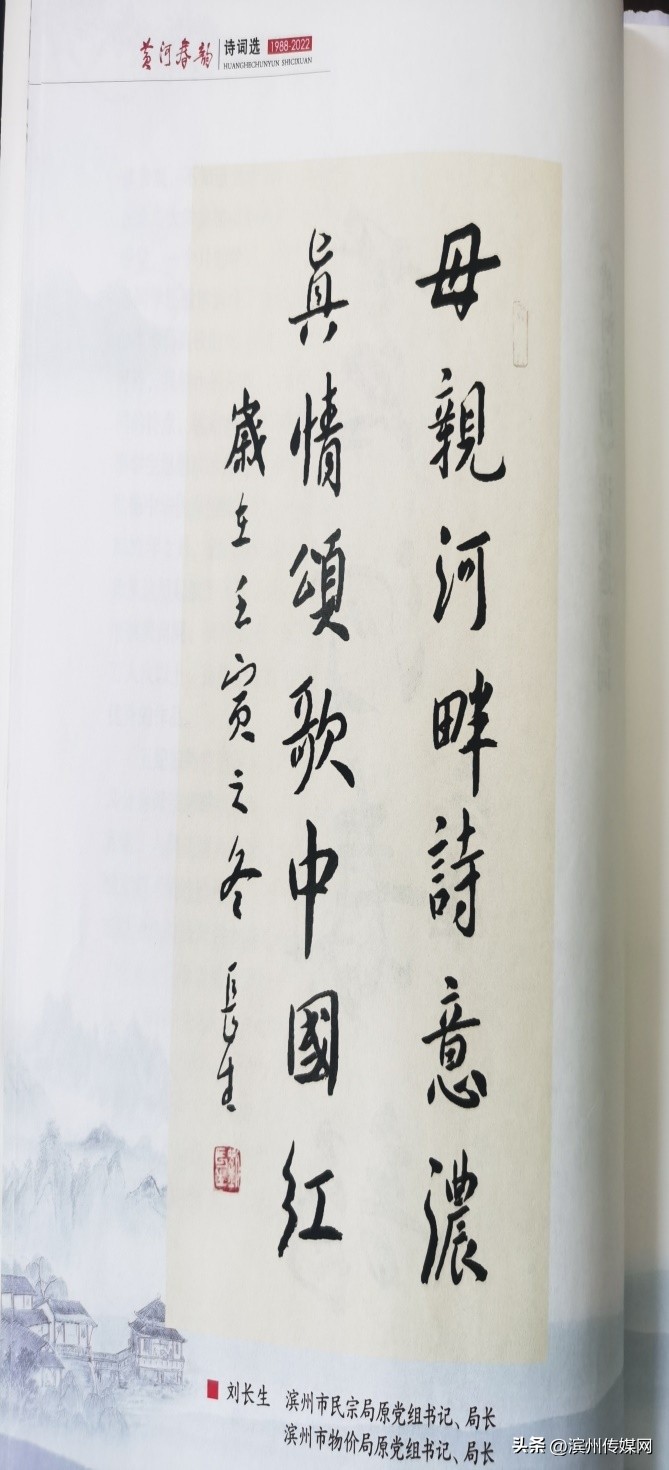 黄河春韵 诗词选 1988-2022
HUANGHECHUNYUN SHICIXUAN
母親河畔詩意濃
眞情頌歌中國紅
歲在壬寅之冬 長生
刘长生 滨州市民宗局原党组书记、局长
滨州市物价局原党组书记、局长
头条 @滨州传媒网